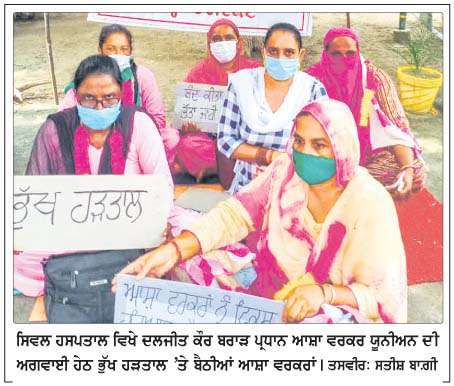 ਬੰਦ ਕੀਤਾ
ਭੱਤਾ ਜਾਰੀ
ਭੁੱਖ ਹੜਤਾਲ
ਆਸ਼ਾ ਵਰਕਰਾਂ ਨੂੰ ਫਿਕਸ
ਸਿਵਲ ਹਸਪਤਾਲ ਵਿਖੇ ਦਲਜੀਤ ਕੌਰ ਬਰਾੜ ਪ੍ਰਧਾਨ ਆਸ਼ਾ ਵਰਕਰ ਯੂਨੀਅਨ ਦੀ
ਅਗਵਾਈ ਹੇਠ ਭੁੱਖ ਹੜਤਾਲ ’ਤੇ ਬੈਠੀਆਂ ਆਸ਼ਾ ਵਰਕਰਾਂ। ਤਸਵੀਰ: ਸਤੀਸ਼ ਬਾਗੀ